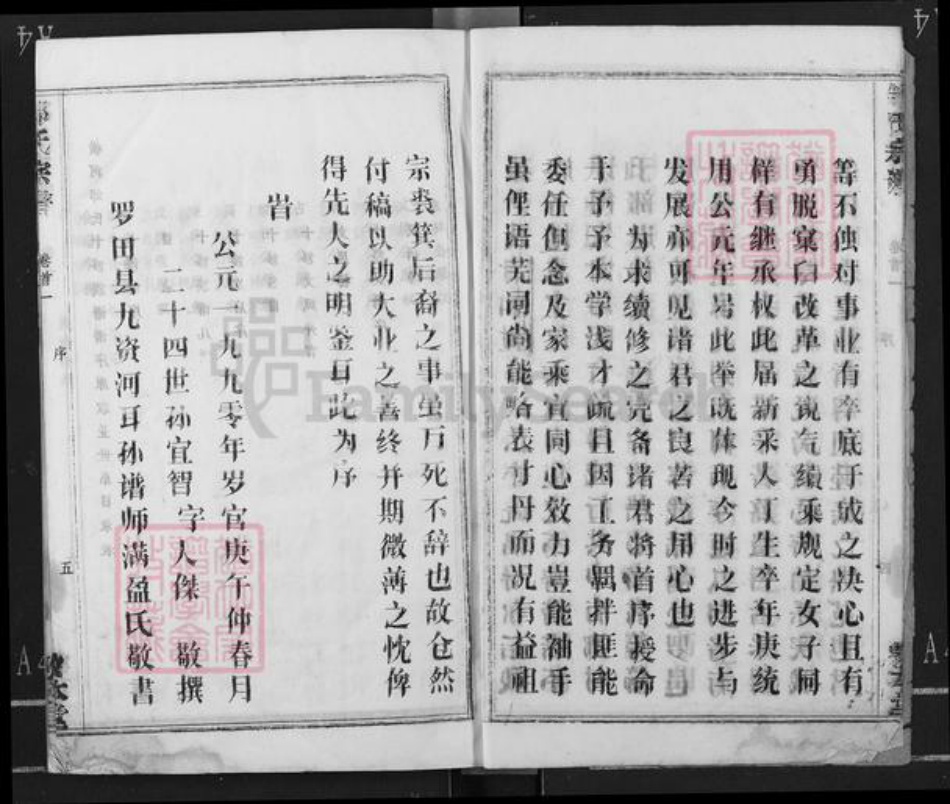 等不蚀对事业有卒底于成之决心且有
勇脱窠臼改革之锐气续乘规定女子同
样有继承权此届新采人丁生卒年庚统
用公元年号此举既体现今时之进步与
发展亦可见诸君之良苦之用心也
为求续修之完备诸君将首序授命
于予予本学浅才疏且因工务羁拌匪能
委任但念及家乘宜同心效力豈能袖手
虽俚语芜词尚能略表寸丹而况有益祖
宗裘箕后裔之事虽万死不辞也故仓然
付稿以助大业之善终并期微薄之忱俾
得先大之明鉴耳此为序
旹
公元一九九零年岁官庚午仲春月
二十四世孙宜智 字人傑 敬撰
罗田县九资河耳孙谱师满盈氏敬書
氏宗譜
卷首一
序
五
FamilySearch